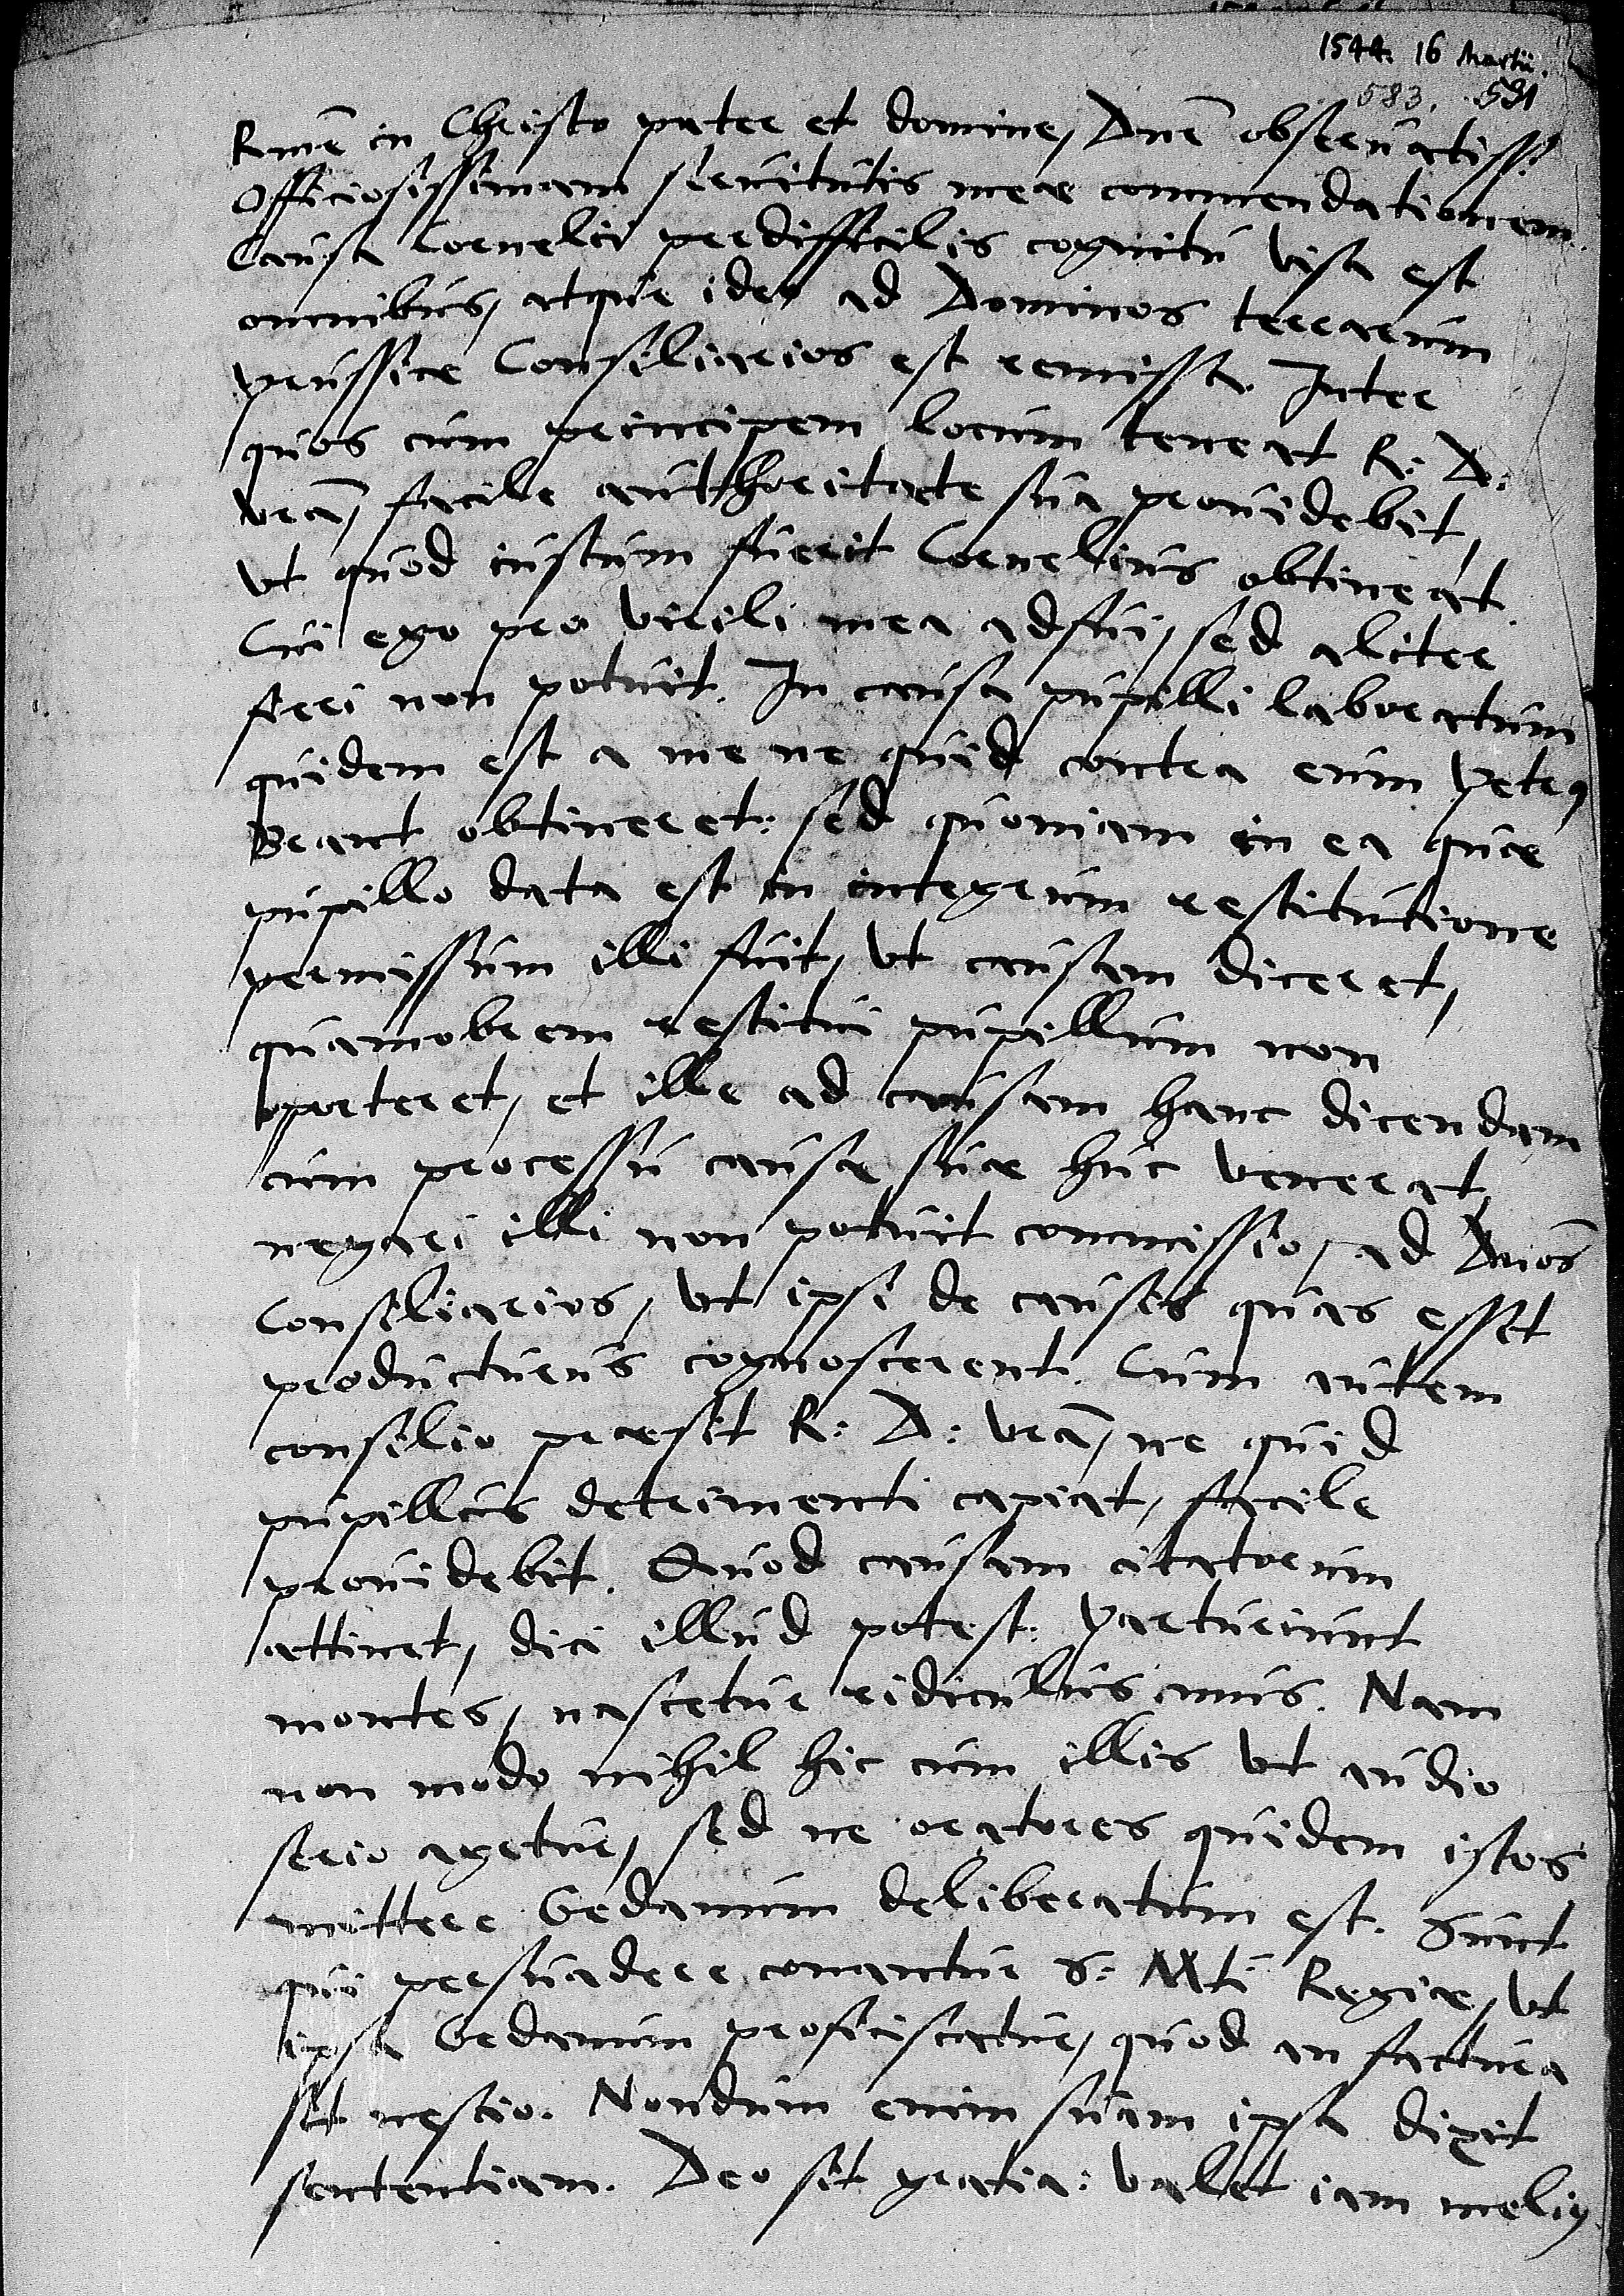 1544. 16 Martii.
583. 591
Rme in Christo pater et domine, Dne observatiss:
Officiosissimam servitutis meae commendationem.
Causa Cornelii perdifficilis cognitu visa est
omnibus, atque ideo ad Dominos terrarum
Prussiae Consiliarios est remissa. Inter
quos cum principem locum teneat R: D:
vra, facile authoritate sua providebit,
ut quod iustum fuerit Cornelius obtineat.
Cui ego pro virili mea adfui, sed aliter
fieri non potuit. In causa pupilli laboratum
quidem est a me ne quid contra eum Petrus
Brant obtineret: sed quoniam in ea quae
pupillo data est in integrum restitutione
permissum illi fuit, ut causam diceret,
quamobrem restitui pupillum non
oporteret, et ille ad causam hanc dicendam
cum processu causae suae huc venerat,
negari illi non potuit commissio, ad Dnos
Consiliarios, ut ipsi de causis quas esset
producturus cognoscerent. Cum autem
consilio praesit R: D: vra, ne quid
pupillus detrimenti capiat, facile
providebit. Quod causam citatorum
attinet, dici illud potest: Parturiunt
montes, nascetur ridiculus mus. Nam
non modo nihil hic cum illis ut audio
serio agetur, sed ne oratores quidem istos
mittere Gedanum deliberatum est. Sunt
qui persuadere conantur S: Mti Regiae, ut
ipsa Gedanum proficiscatur, quod an factura
sit nescio. Nondum enim suam ipsa dixit
sententiam. Deo sit gratia: valet iam melius